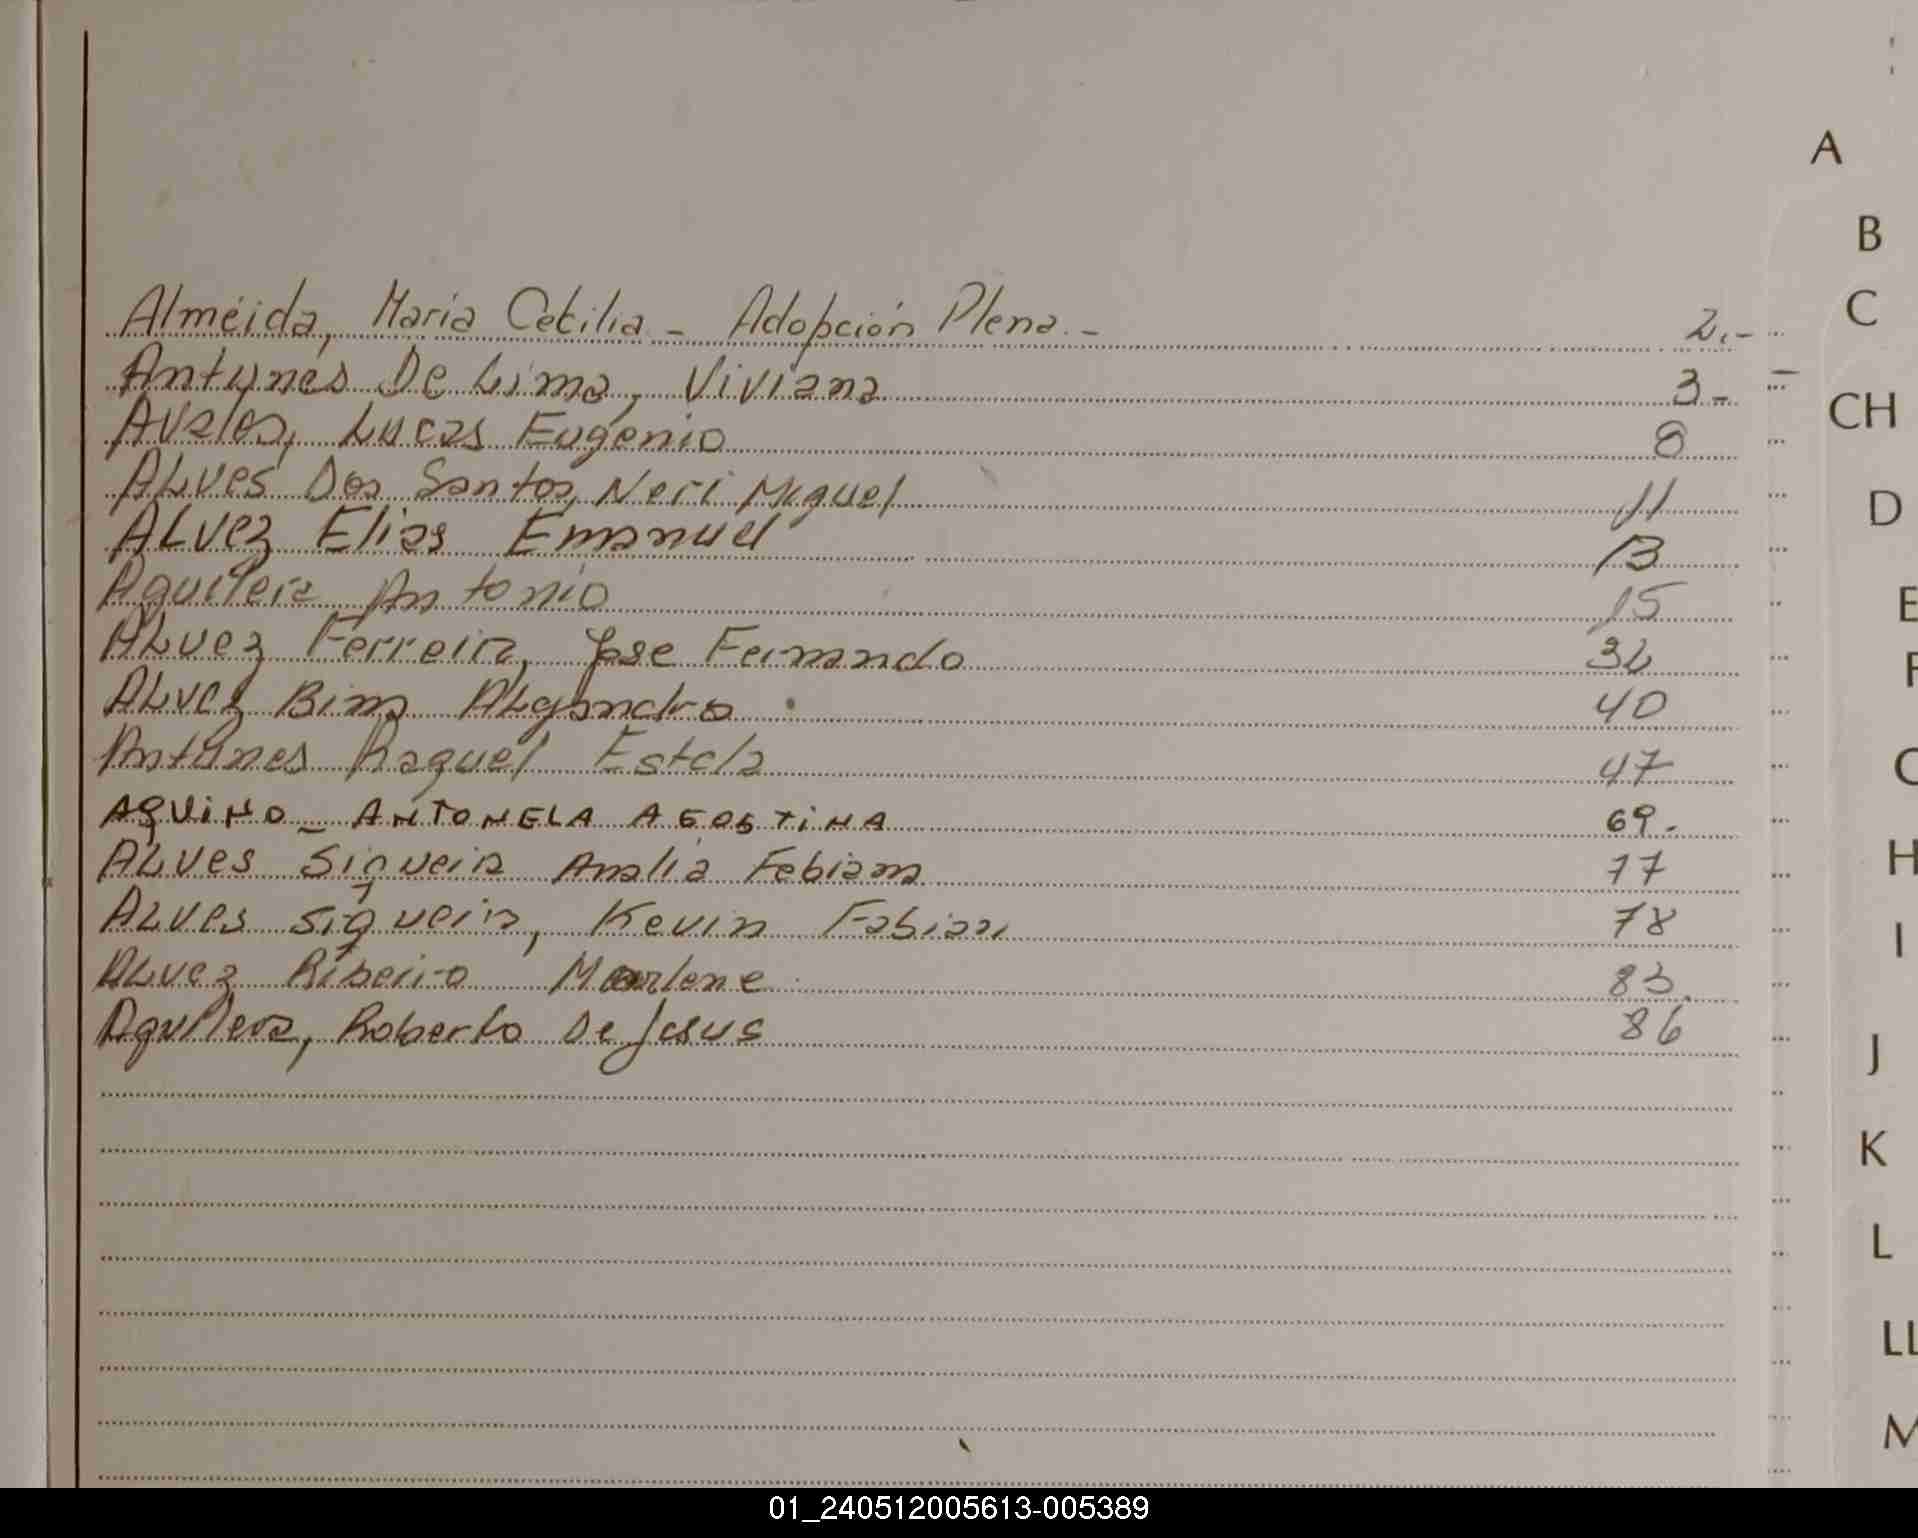 A
B
C
CH
D
E
F
G
H
I
J
K
L
LL
M
Alméida, Maria Cecilia - Adopción Plena.- 2.-
Antunes De Lima, Viviana 3-
Avalos, Lucas Eugenio 8
ALves Dos Santos, Neri Miguel 11
ALvez Elias Emanuel 13
Aguilera Antonio 15
ALvez Ferreira, Jose Fernando 32
ALvez Bima ALejandro 40
Antunes Raquel Estela 47
AQUINO - ANTONELA AGOSTINA 69.
ALves Siqueira Analia Fabiana 77
ALves Siqueira, Kevin Fabian 78
ALvez Ribeiro Marlene 83.
Aguilera, Roberto De Jesus 86
01_240512005613-005389